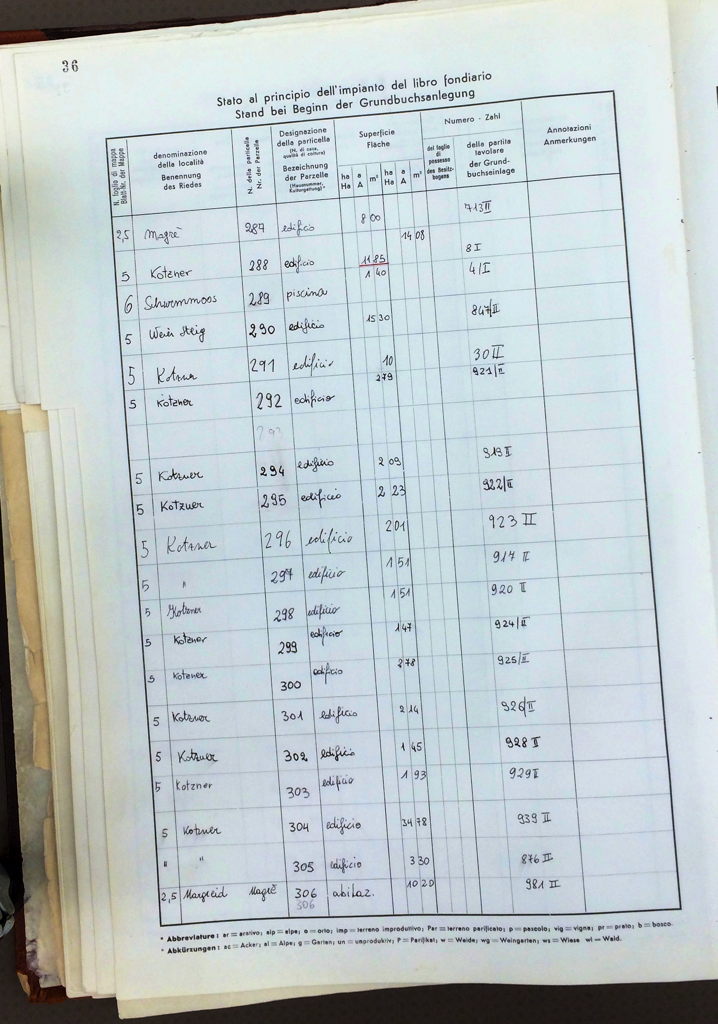 36
Stato al principio dell'impianto del libro fondiario
Stand bei Beginn der Grundbuchsanlegung
N. foglio di mappa
Blatt-Nr. der Mappe
denominazione della località
Benennung des Riedes
N. della particella
Nr. der Parzelle
Designazione della particella
(N. di casa, qualità di coltura)
Bezeichnung der Parzelle
(Hausnummer, Kulturgattung)
Superficie
Fläche
ha Ha a A m² ha Ha a A m²
Numero - Zahl
del foglio di possesso
des Besitzbogens
della partita tavolare
der Grundbuchseinlage
Annotazioni
Anmerkungen
2,5 Magrè 287 edificio 8 00 713 II
14 08
5 Kotzner 288 edificio 11 85 8 I
6 Schwemmoos 289 piscina 1 40 4/I
5 290 edificio 15 30 847/II
5 Kotzner 291 edificio 10 30 II
5 Kotzner 292 edificio 279 921/II
293
5 Kotzner 294 edificio 2 09 913 II
5 Kotzner 295 edificio 2 23 922/II
5 Kotzner 296 edificio 201 923 II
5 " 297 edificio 1 51 917 II
5 Kotzner 298 edificio 1 51 920 II
5 Kotzner 299 edificio 1 47 924/II
5 Kotzner 300 edificio 2 78 925/II
5 Kotzner 301 edificio 2 14 926/II
5 Kotzner 302 edificio 1 45 928 II
5 Kotzner 303 edificio 1 93 929 II
5 Kotzner 304 edificio 34 78 939 II
" " 305 edificio 3 30 876 II
2,5 Margreid Magrè 306 abitaz. 10 20 981 II
306
* Abbreviature: ar = arativo; alp = alpe; o = orto; imp = terreno improduttivo; Par = terreno parificato; p = pascolo; vig = vigna; pr = prato; b = bosco.
* Abkürzungen: ac = Acker; al = Alpe; g = Garten; un = unproduktiv; P = Parifikat; w = Weide; wg = Weingarten; ws = Wiese wl = Wald.